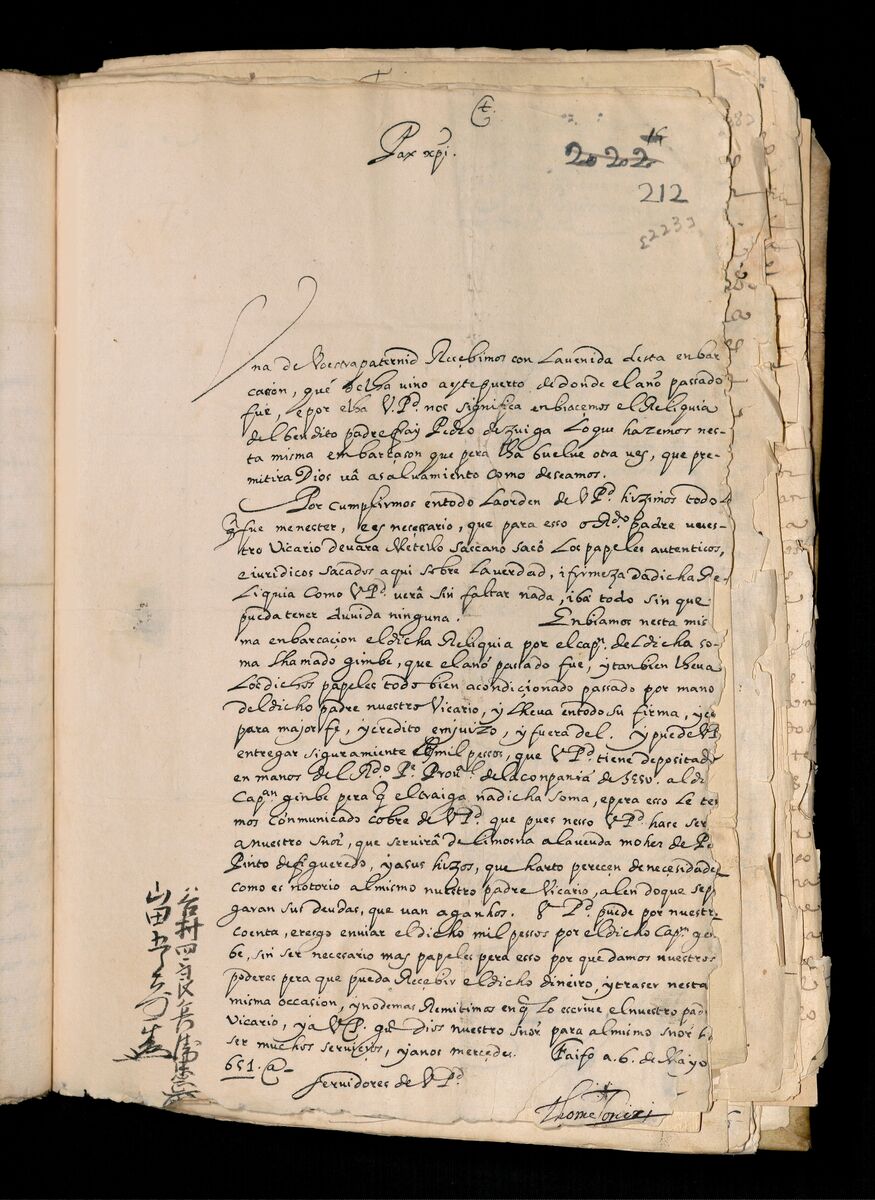 Pax xpi.
202
16
212
223
Una de Vuestra paternid Recebimos con La venida desta enbar
cason, que della vino a este puerto de donde el año passado
fue, e por elha V. Pd. nos significa enbiacemos el Reliquia
del bendito padre fray Pedro de zuiga Lo que hazemos nes-
ta misma embarcason que pera lha buelve otra ves, que pre-
mitira Dios vâ a salvamiento como deseamos.
Por cumplirmos en todo La orden de V Pd. hizimos todo Lo
q fue menester, e es necessario, que para esso o Rdo. padre nues-
tro Vicario de vara Metello Saccano sacô Los papeles autenticos,
e iuridicos sacados aqui sobre La verdad, i firmeza da dicha Re-
Liquia como V Pd. verâ sin faltar nada, i bâ todo sin que
pueda tener duvida ninguna. Enbiamos nesta mis
ma enbarcaçion el dicha Reliquia por el capn. deL dicha so-
ma Lhamado gimbe, que el ano passado fue, y tanbien lheva
Los dichos papeles todo bien acondicionado passado por mano
del dicho padre nuestro Vicario, y Lheva en todo su firma, y es
para major fe, y credito em juizo, y fuera del. y puede V P
entregar siguramiente mil pessos, que V Pd. tiene depositado
en manos del Rdo. Pe. Proval. de la conpania de Jesus. al di
Capan ginbe pera q el traiga na dicha soma, e pera esso Le te
mos comunicado cobre de V Pd. que pues nesso V Pd. hase ser
a nuestro Snor, que servirâ de limosna a La veuda moher de Po
Pinto de figueredo, y a sus hijos, que harto perecen de necesidades
como es notorio al mismo nuestro padre Vicario, alen do que se p
garan sus deudas, que van a ganhos. V Pd. puede por nuestra
cuenta, e resgo enviar el dicho mil pessos por el dicho Capn gin
be, sin ser necessario mas papeles pera esso por que damos nuestros
poderes pera que pueda Recebir el dicho dineiro, y traser nesta
misma occasion, y no demas Remitimas en q Lo escrive el nuestro pad
Vicario, y a V P. gde Dios nuestro Snor para al mismo snor
ser muchos serviçios, y a nos mercedes. Faifo a. 6. de Mayo
651. a
servidores de V Pd
Thome
谷村四郎兵衛
山田